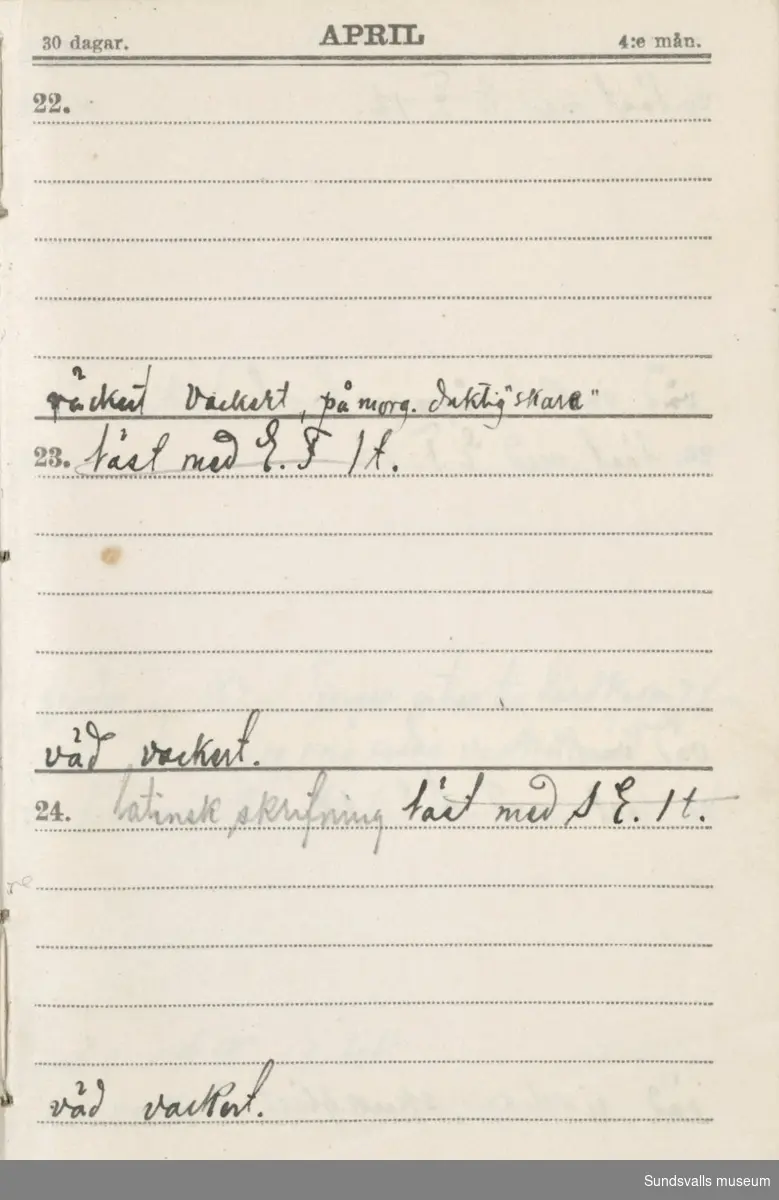 30 dagar. APRIL 4:e mån.
22.
väckert vackert, på morg. duktig "skare"
23. läst med E. F 1 t.
väd vackert.
24. latinsk skrifning läst med S E. 1 t.
väd vackert.
Sundsvalls museum